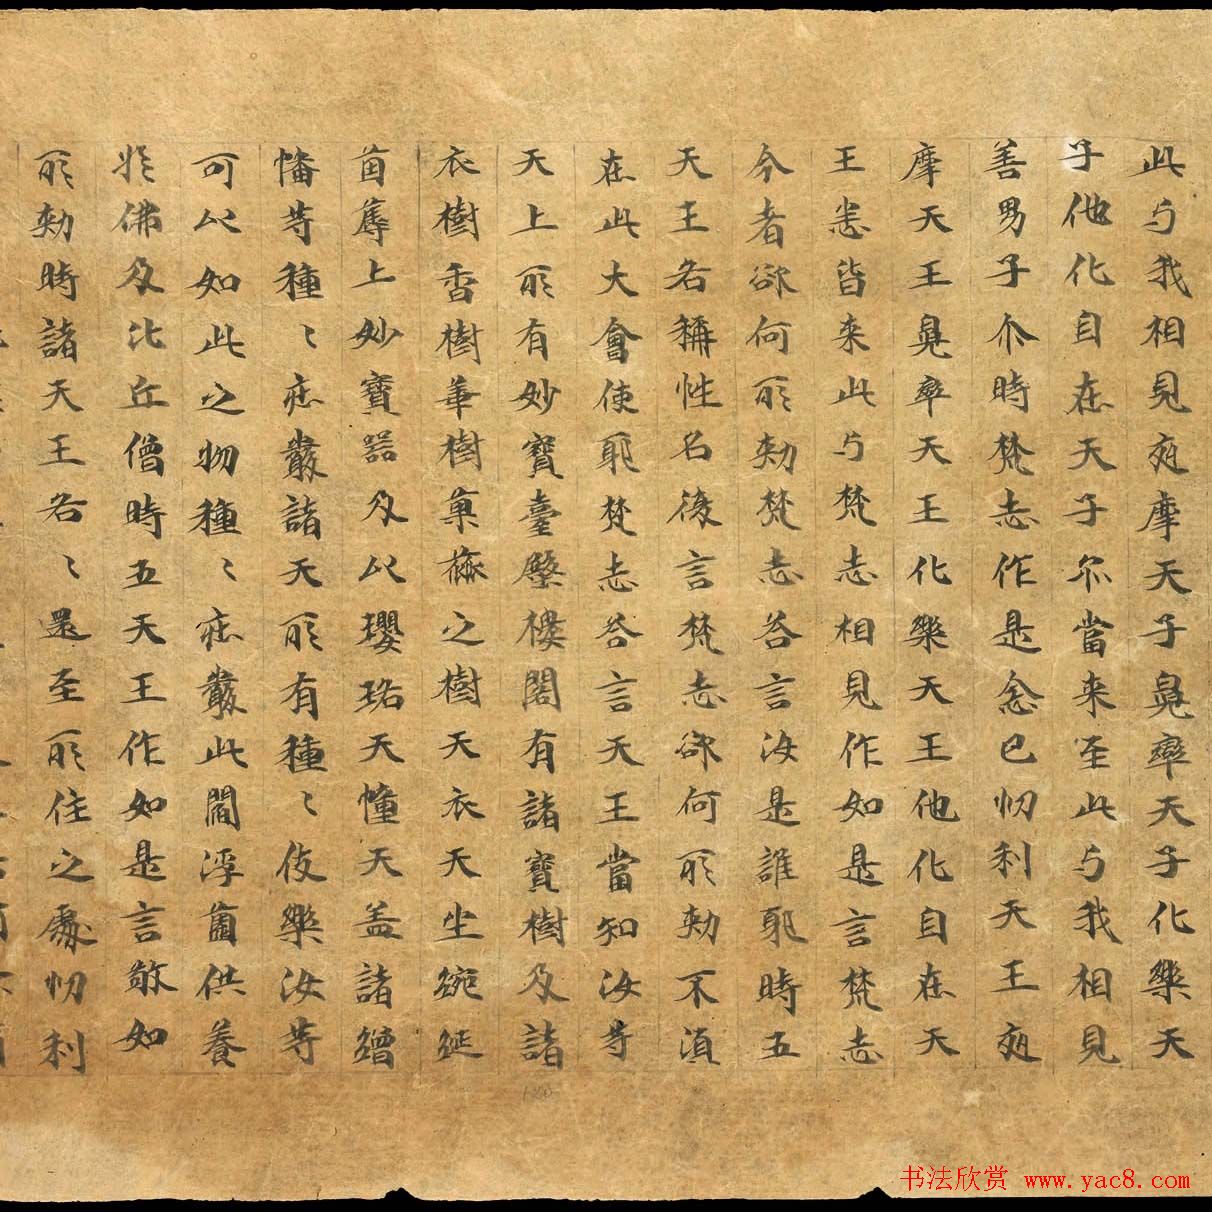 此与我相見夜摩天子兜率天子化樂天
子他化自在天子尒當来至此与我相見
善男子尒時梵志作是念已忉利天王夜
摩天王兜率天王化樂天王他化自在天
王悉皆来此与梵志相見作如是言梵志
今者欲何所勑梵志荅言汝是誰耶時五
天王各稱性名後言梵志欲何所勑不湏
在此大會使耶梵志荅言天王當知汝等
天上所有妙寶臺殿樓閣有諸寶樹及諸
衣樹香樹華樹菓蓏之樹天衣天坐綩綖
茵蓐上妙寶器及以瓔珞天幢天盖諸繒
幡等種〻疰嚴諸天所有種〻伎樂汝等
可以如此之物種〻疰嚴此閻浮薗供養
於佛及比丘僧時五天王作如是言敬如
所勑時諸天王各〻還至所住之處忉利
书法欣赏 www.yac8.com